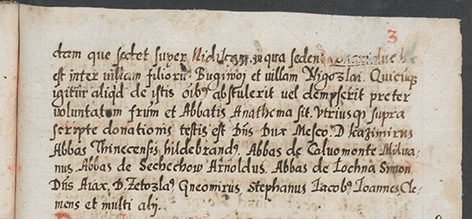 3
ctam que sedet super Nidit in qua sedens
est inter uillam filiorū Buginoÿ et uillam Nigozlai. Quicūq
igitūr aliqd de istis oibꝰ abstulerit uel dempserit preter
voluntatem frum et Abbatis Anathema sit. Utriusqꝫ supra
scripte donationis testis est Dñs Dux Mesco. D Kazimirus
Abbas Thinecensis hildebrandꝰ. Abbas de Caluomonte Milua
nus Abbas de Sechechow Arnoldus. Abbas de Lochna Simon
Dñs Aiax, D. Zetozlaꝰ Gneomirus Stephanus Iacobꝰ Ioannes Cle
mens et multi alij.